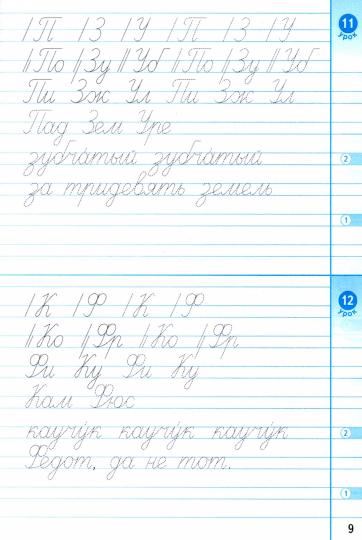 П З У П З У
11 урок
По Зу Уб По Зу Уб
Пи Зж Ул Пи Зж Ул
Пад Зем Уре
зубча́тый зубча́тый
2
за тридевять земель
1
К Ф К Ф
12 урок
Ко Фр Ко Фр
Фи Ку Фи Ку
Кам Фюс
каучу́к каучу́к каучу́к
2
Федот, да не тот.
1
9